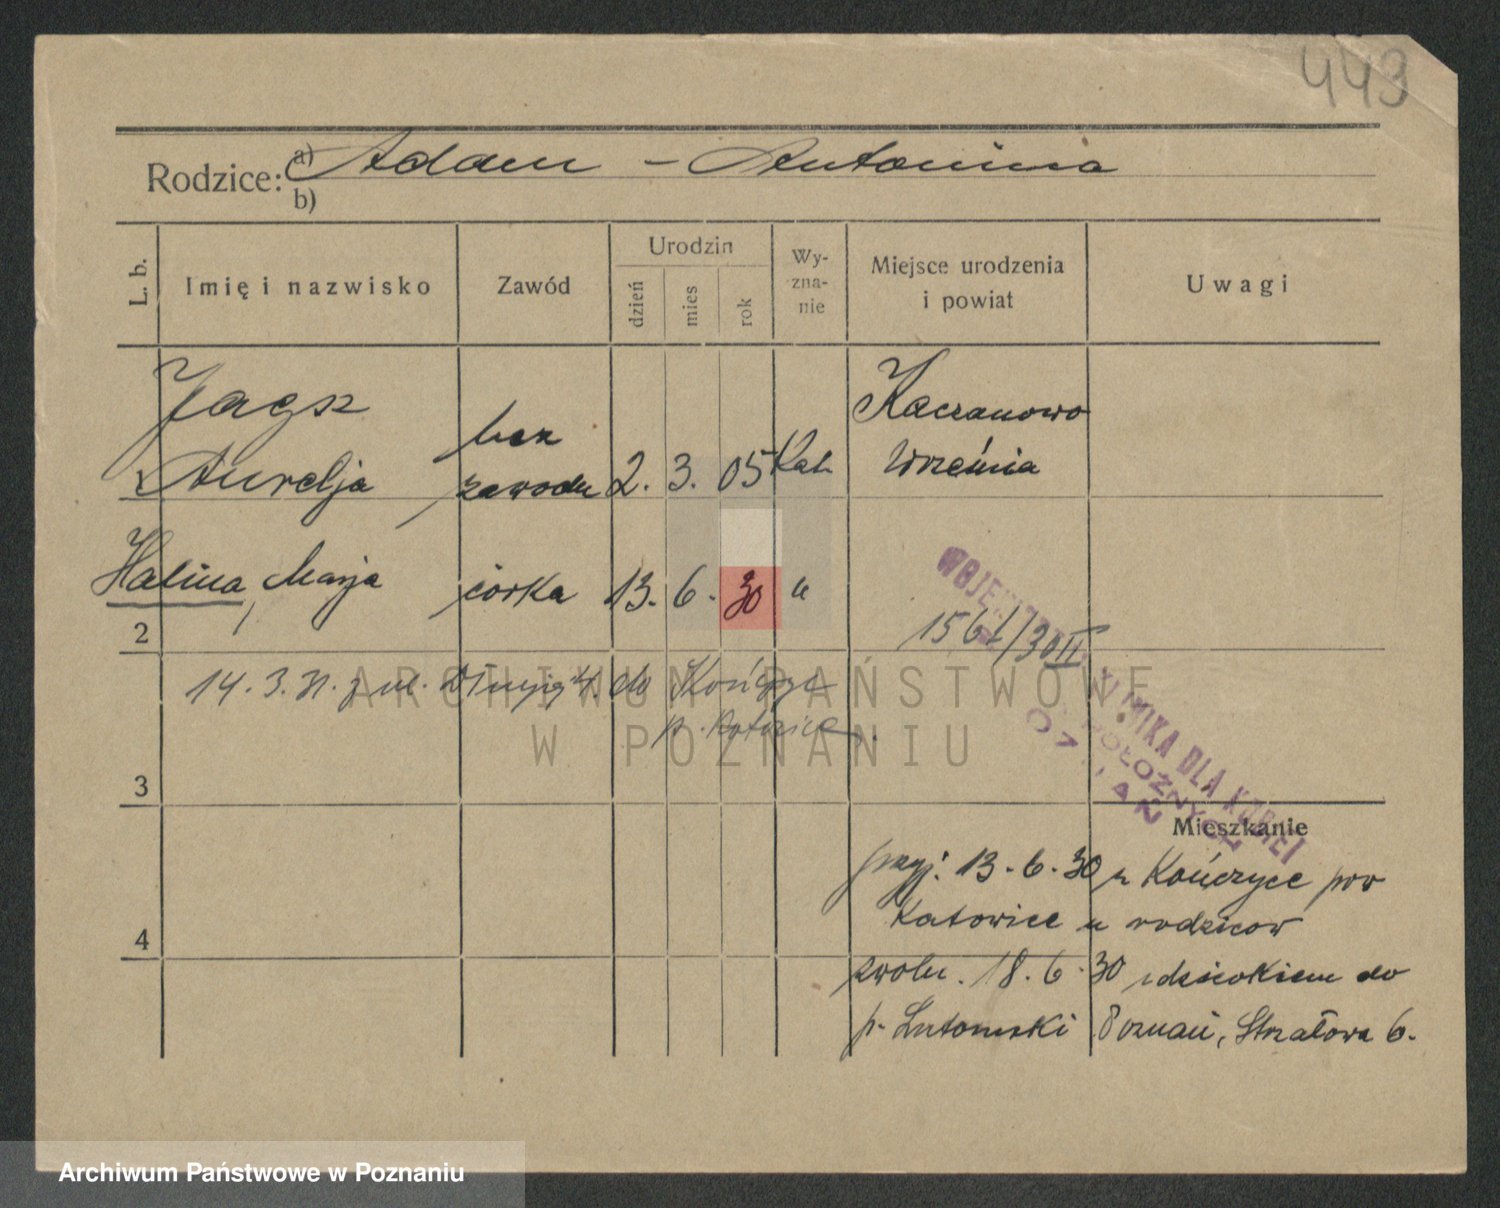 443
Rodzice: a) Adam – Antonina
b)
L. b.
Imię i nazwisko
Zawód
Urodzin
dzień
mies
rok
Wy-
zna-
nie
Miejsce urodzenia
i powiat
Uwagi
Jagsz
Aurelja
bez
zawodu
2. 3. 05
Kat
Kaczanowo
Września
Halina, Marja
córka
13. 6. 30
"
2
1561/30 II
14. 3. 31. z ul. Długiej 4. do Kończyc
p. Katowice.
ARCHIWUM PAŃSTWOWE
W POZNANIU
3
DLA KOBIET
POŁOŻNYCH
Mieszkanie
przyj: 13.6.30 z Kończyce pow
Katowice u rodziców
4
zwoln. 18.6.30 z dzieckiem do
p. Lutomski Poznań, Strzałowa 6.
Archiwum Państwowe w Poznaniu